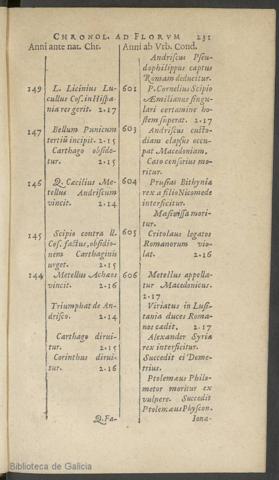 CHRONOL. AD FLORVM 231
Anni ante nat. Chr. Anni ab Vrb. Cond.
Andriscus Pseu-
dophilippus captus
Romam deducitur.
149 L. Licinius Lu-
cullus Cos. in Hispa-
nia res gerit. 2.17
601 P. Cornelius Scipio
Æmilianus singu-
lari certamine ho-
stem superat. 2.17
147 Bellum Punicum
tertiũ incipit. 2.15
Carthago obside-
tur. 2.15
603 Andriscus custo-
diam elapsus occu-
pat Macedoniam.
Caso censorius mo-
ritur.
146 Q. Cæcilius Me-
tellus Andriscum
vincit. 2.14
604 Prusias Bithynia
rex a filio Nicomede
interficitur.
Masinissa mori-
tur.
145 Scipio contra ll.
Cos. factus, obsidio-
nem Carthaginis
urget. 2.15
605 Critolaus legatos
Romanorum vio-
lat. 2.16
144 Metellus Achæos
vincit. 2.16
606 Metellus appella-
tur Macedonicus.
2.17
Triumphat de An-
drisco. 2.14
Viriatus in Lusi-
tania duces Roma-
nos cædit. 2.17
Carthago dirui-
tur. 2.15
Corinthus dirui-
tur. 2.16
Alexander Syria
rex interficitur.
Succedit ei Deme-
trius.
Ptolemæus Philo-
metor moritur ex
vulnere. Succedit
Ptolemæus Physcon.
Q. Fa-
Iona-
Biblioteca de Galicia